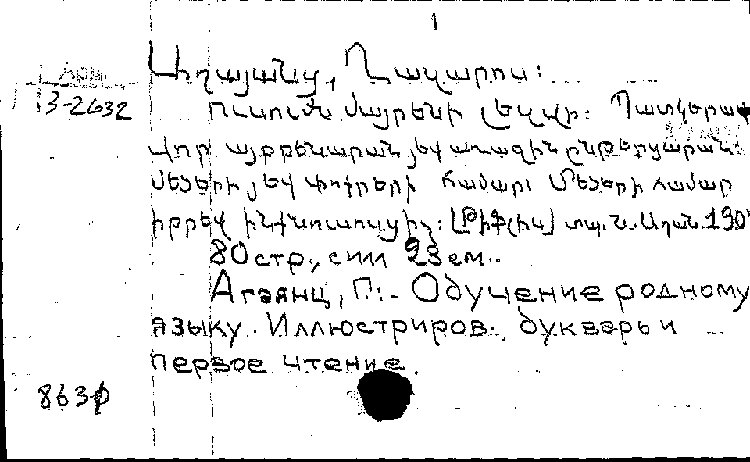 1
Աղայանց, Ղազարոս:
Арм.
3-2632
Ուսումն մայրենի լեզվի: Պատկերազ
վոր այբբենարան յեվ առաջին ընթերցարան
մեծերի յեվ փոքրերի համար: Մեծերի համար
իբրեվ ինքնուսուցիչ: [Թիֆլիս] տպ. Ն. Աղան. 190
80 стр., илл 23 см.
Агаянц, П:. Обучение родному
языку. Иллюстриров. букварь и
первое чтение.
863ф